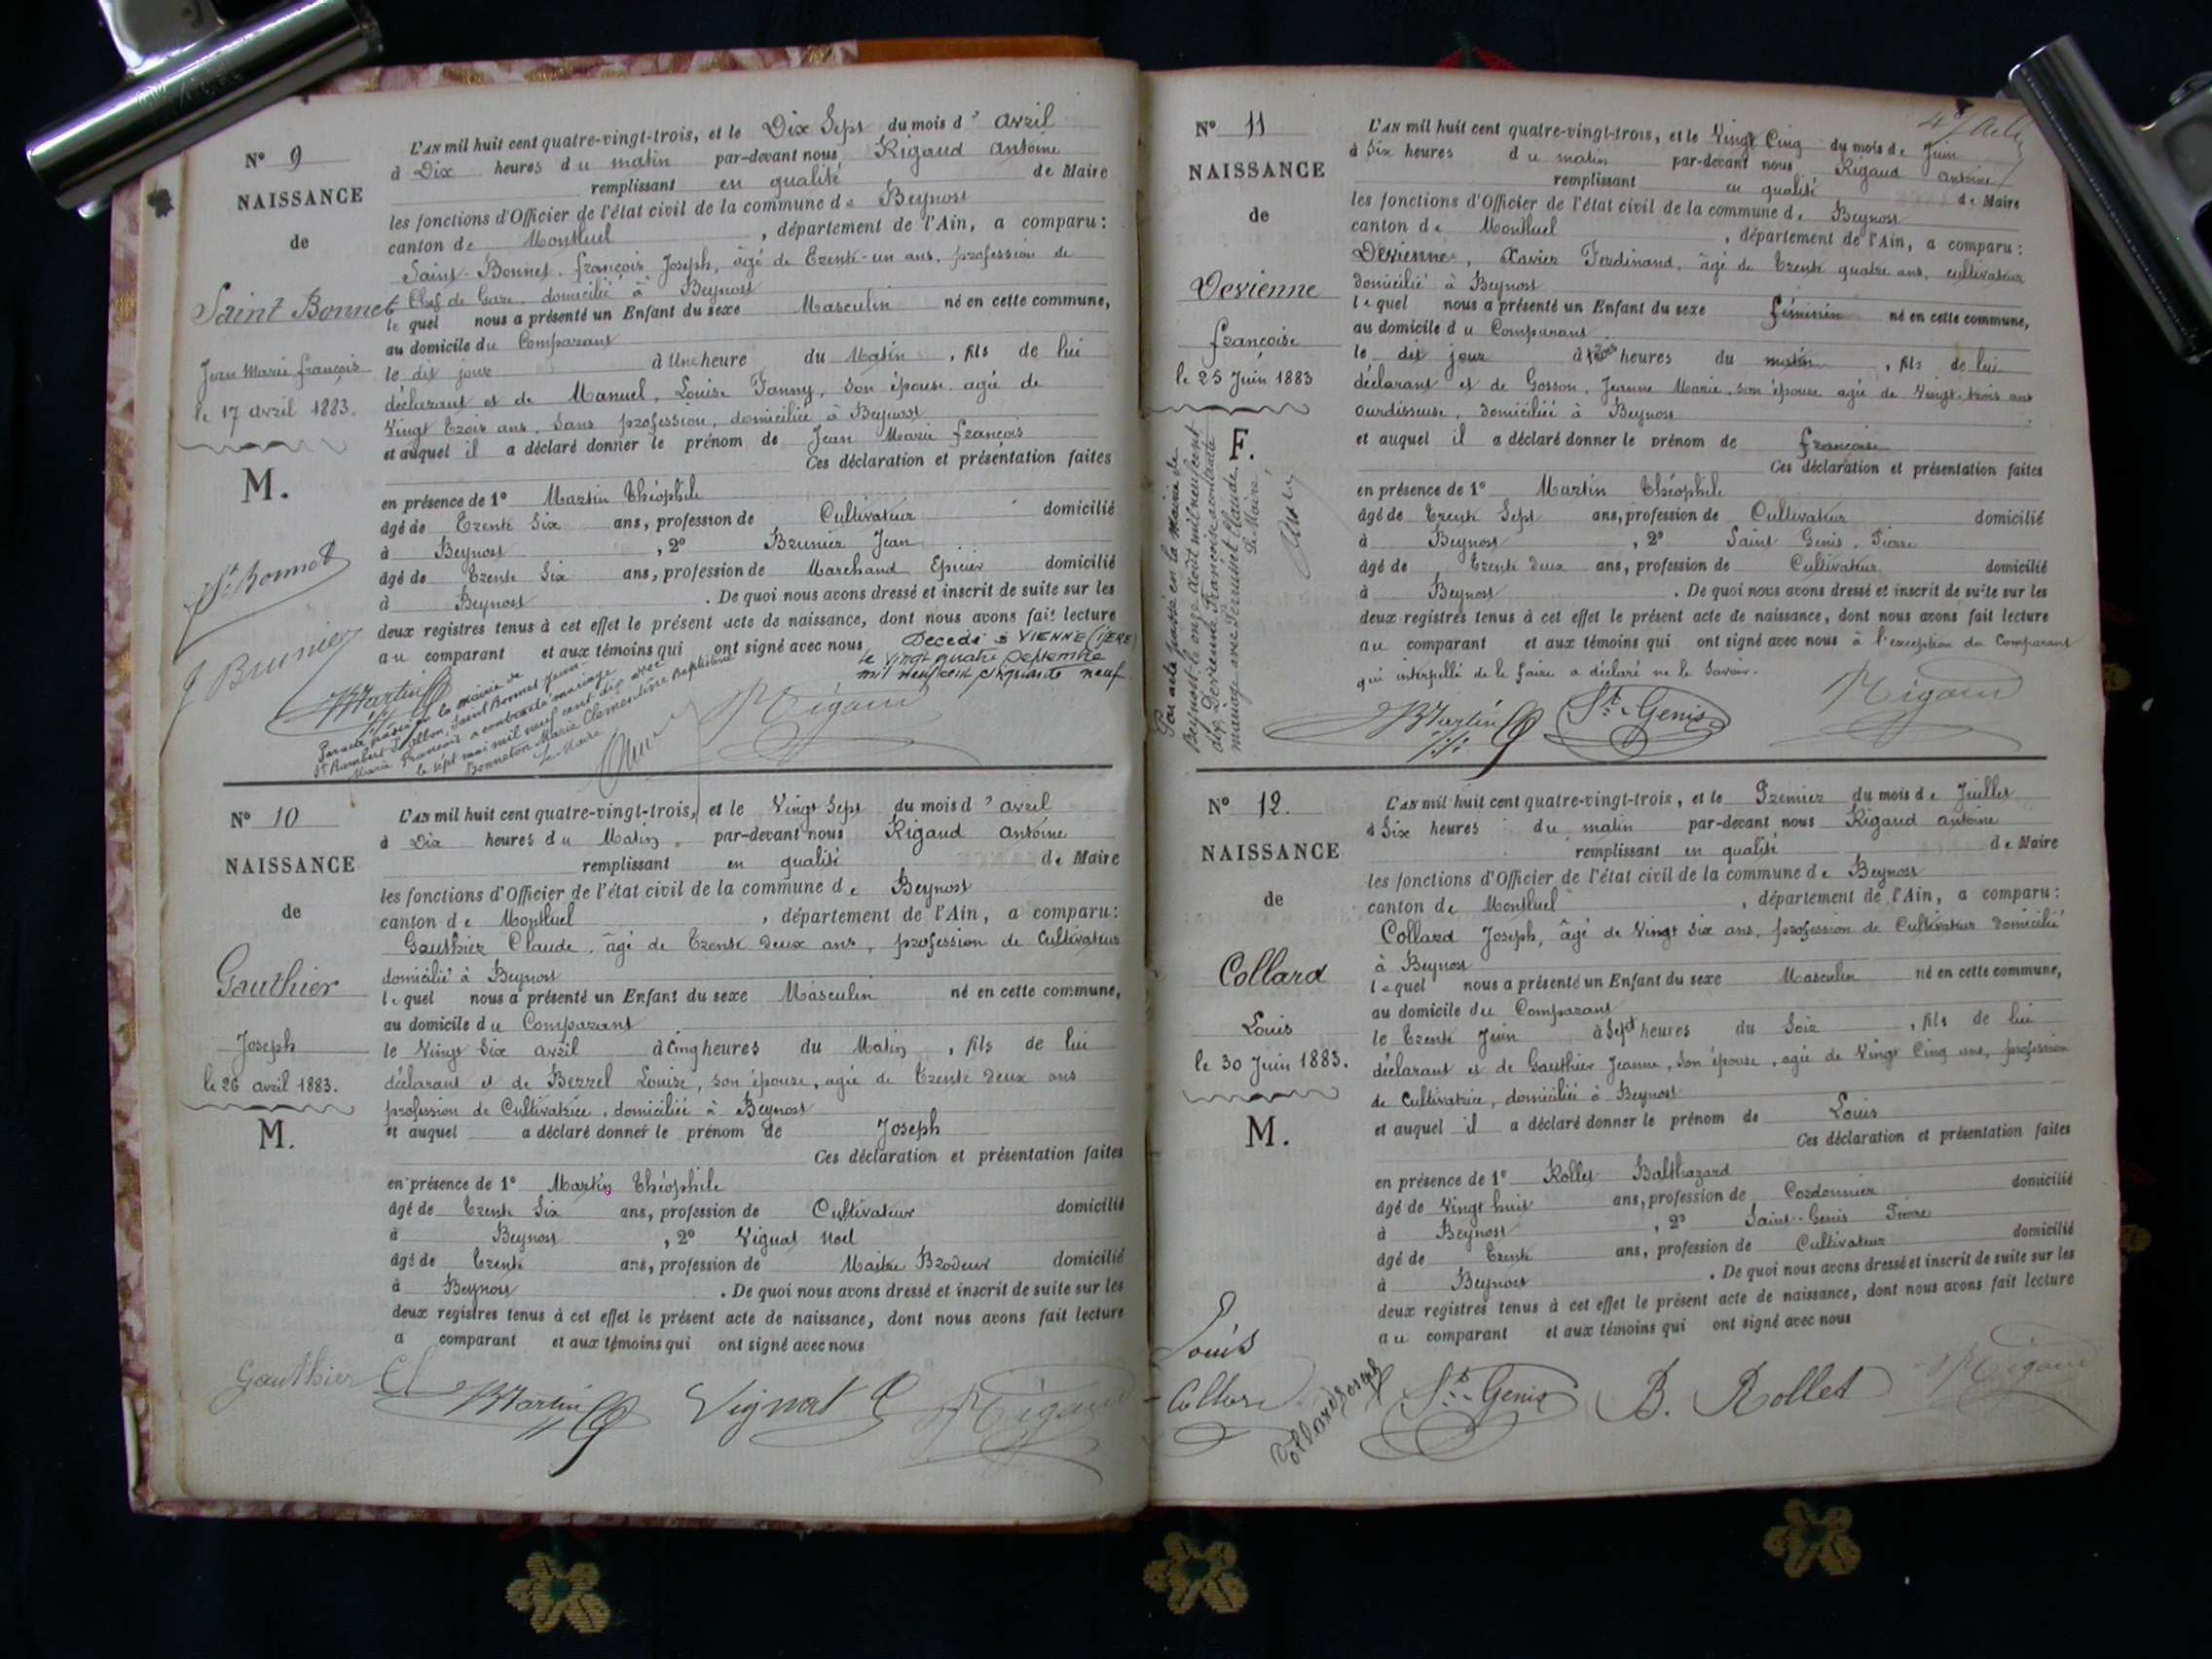 N° 9
NAISSANCE
de
Saint Bonnet
Jean Marie françois
le 17 avril 1883.
M.
L'AN mil huit cent quatre-vingt-trois, et le Dix Sept du mois d' avril
à Dix heures du matin par-devant nous Rigaud antoine
remplissant en qualité de Maire
les fonctions d'Officier de l'état civil de la commune de Beynost
canton de Montluel, département de l'Ain, a comparu:
Saint-Bonnet, françois Joseph, âgé de Trente-un ans, profession de
Chef de Gare, domicilié à Beynost
lequel nous a présenté un Enfant du sexe Masculin né en cette commune,
au domicile du Comparant
le dit jour à Une heure du Matin, fils de lui
déclarant et de Manuel, Louise Fanny, son épouse agée de
Vingt trois ans, sans profession, domiciliée à Beynost
et auquel il a déclaré donner le prénom de Jean Marie françois
Ces déclaration et présentation faites
en présence de 1° Martin théophile
âgé de Trente Six ans, profession de Cultivateur domicilié
à Beynost, 2° Brunier Jean
âgé de Trente Six ans, profession de Marchand Epicier domicilié
à Beynost. De quoi nous avons dressé et inscrit de suite sur les
deux registres tenus à cet effet le présent acte de naissance, dont nous avons fait lecture
au comparant et aux témoins qui ont signé avec nous
Décédé à VIENNE (ISERE)
le vingt quatre septembre
mil neuf cent cinquante neuf.
St Bonnet
J Brunier
Martin
Rigaud
Par acte passé en la mairie de
St Rambert d'Albon, Saint Bonnet Jean
Marie François a contracté mariage
le sept mai mil neuf cent dix avec
Bonneton Marie Clémentine Baptistine
Le Maire
N° 10
NAISSANCE
de
Gauthier
Joseph
le 26 avril 1883.
M.
L'AN mil huit cent quatre-vingt-trois, et le Vingt Sept du mois d' avril
à Dix heures du Matin, par-devant nous Rigaud antoine
remplissant en qualité de Maire
les fonctions d'Officier de l'état civil de la commune de Beynost
canton de Montluel, département de l'Ain, a comparu:
Gauthier Claude, âgé de Trente deux ans, profession de Cultivateur
domicilié à Beynost
lequel nous a présenté un Enfant du sexe Masculin né en cette commune,
au domicile du Comparant
le Vingt Six avril à Cinq heures du Matin, fils de lui
déclarant et de Berrel Louise, son épouse, agée de Trente deux ans
profession de Cultivatrice, domiciliée à Beynost
et auquel a déclaré donner le prénom de Joseph
Ces déclaration et présentation faites
en présence de 1° Martin théophile
âgé de Trente Six ans, profession de Cultivateur domicilié
à Beynost, 2° Vignat Noel
âgé de Trente ans, profession de Maitre Brodeur domicilié
à Beynost. De quoi nous avons dressé et inscrit de suite sur les
deux registres tenus à cet effet le présent acte de naissance, dont nous avons fait lecture
a comparant et aux témoins qui ont signé avec nous
Gauthier Cl Martin Vignat Rigaud
N° 11
NAISSANCE
de
Devienne
françoise
le 25 Juin 1883
F.
Par acte passé en la Mairie de
Beynost le onze août mil neuf cent
dix, Devienne Françoise a contracté
mariage avec Perusset Claude.
Le Maire,
L'AN mil huit cent quatre-vingt-trois, et le Vingt Cinq du mois de Juin
à Six heures du matin par-devant nous Rigaud antoine
remplissant en qualité de Maire
les fonctions d'Officier de l'état civil de la commune de Beynost
canton de Montluel, département de l'Ain, a comparu:
Devienne, Xavier Ferdinand, âgé de Trente quatre ans, cultivateur
domicilié à Beynost
lequel nous a présenté un Enfant du sexe féminin né en cette commune,
au domicile du Comparant
le dit jour à trois heures du matin, fils de lui
déclarant et de Gosson, Jeanne Marie, son épouse agée de Vingt-trois ans
ourdisseuse, domiciliée à Beynost
et auquel il a déclaré donner le prénom de françoise
Ces déclaration et présentation faites
en présence de 1° Martin théophile
âgé de Trente Sept ans, profession de Cultivateur domicilié
à Beynost, 2° Saint Genis, Pierre
âgé de Trente deux ans, profession de Cultivateur domicilié
à Beynost. De quoi nous avons dressé et inscrit de suite sur les
deux registres tenus à cet effet le présent acte de naissance, dont nous avons fait lecture
au comparant et aux témoins qui ont signé avec nous à l'exception du Comparant
qui interpellé de le faire a déclaré ne le savoir.
Martin St Genis Rigaud
N° 12.
NAISSANCE
de
Collard
Louis
le 30 Juin 1883.
M.
L'AN mil huit cent quatre-vingt-trois, et le Premier du mois de Juillet
à Six heures du matin par-devant nous Rigaud antoine
remplissant en qualité de Maire
les fonctions d'Officier de l'état civil de la commune de Beynost
canton de Montluel, département de l'Ain, a comparu:
Collard Joseph, âgé de Vingt Six ans, profession de Cultivateur domicilié
à Beynost
lequel nous a présenté un Enfant du sexe Masculin né en cette commune,
au domicile du Comparant
le Trente Juin à Sept heures du Soir, fils de lui
déclarant et de Gauthier Jeanne, son épouse, agée de Vingt Cinq ans, profession
de Cultivatrice, domiciliée à Beynost
et auquel il a déclaré donner le prénom de Louis
Ces déclaration et présentation faites
en présence de 1° Rollet Balthazard
âgé de Vingt huit ans, profession de Cordonnier domicilié
à Beynost, 2° Saint-Genis Pierre
âgé de Trente ans, profession de Cultivateur domicilié
à Beynost. De quoi nous avons dressé et inscrit de suite sur les
deux registres tenus à cet effet le présent acte de naissance, dont nous avons fait lecture
au comparant et aux témoins qui ont signé avec nous
Louis
Collard
Collard Joseph St Genis B. Rollet Rigaud